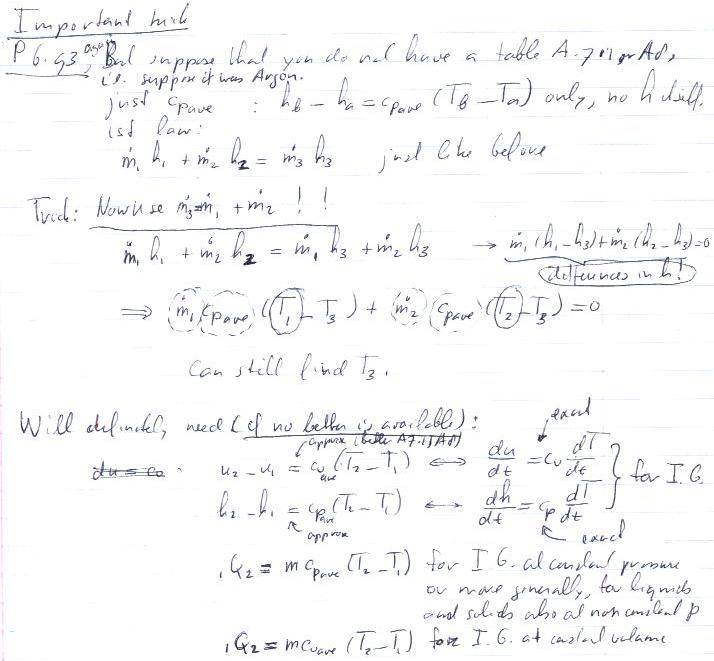 Important trick
P 6.93 again, But suppose that you do not have a table A.7.1 or A8,
i.e. suppose it was Argon.
just c_pave : h_B − h_a = c_pave (T_B − T_a) only, no h itself.
1st law:
ṁ₁ h₁ + ṁ₂ h₂ = ṁ₃ h₃ just like before
Trick: Now use ṁ₃=ṁ₁ + ṁ₂ ! !
ṁ₁ h₁ + ṁ₂ h₂ = ṁ₁ h₃ + ṁ₂ h₃ → ṁ₁ (h₁−h₃)+ṁ₂ (h₂−h₃)=0
differences in h!
⇒ ṁ₁ c_pave (T₁ − T₃) + ṁ₂ c_pave (T₂ − T₃) = 0
Can still find T₃.
Will definitely need (if no better is available):
approx (better A7.1/A8) exact
du = c₀ u₂ − u₁ = c_v ave (T₂ − T₁) ⟷ du/dt = c_v dT/dt
} for I.G.
h₂ − h₁ = c_p ave (T₂ − T₁) ⟷ dh/dt = c_p dT/dt
approx exact
₁Q₂ = m c_pave (T₂ − T₁) for I.G. at constant pressure
or more generally, for liquids
and solids also at nonconstant p
₁Q₂ = m c_vave (T₂ − T₁) for I.G. at constant volume